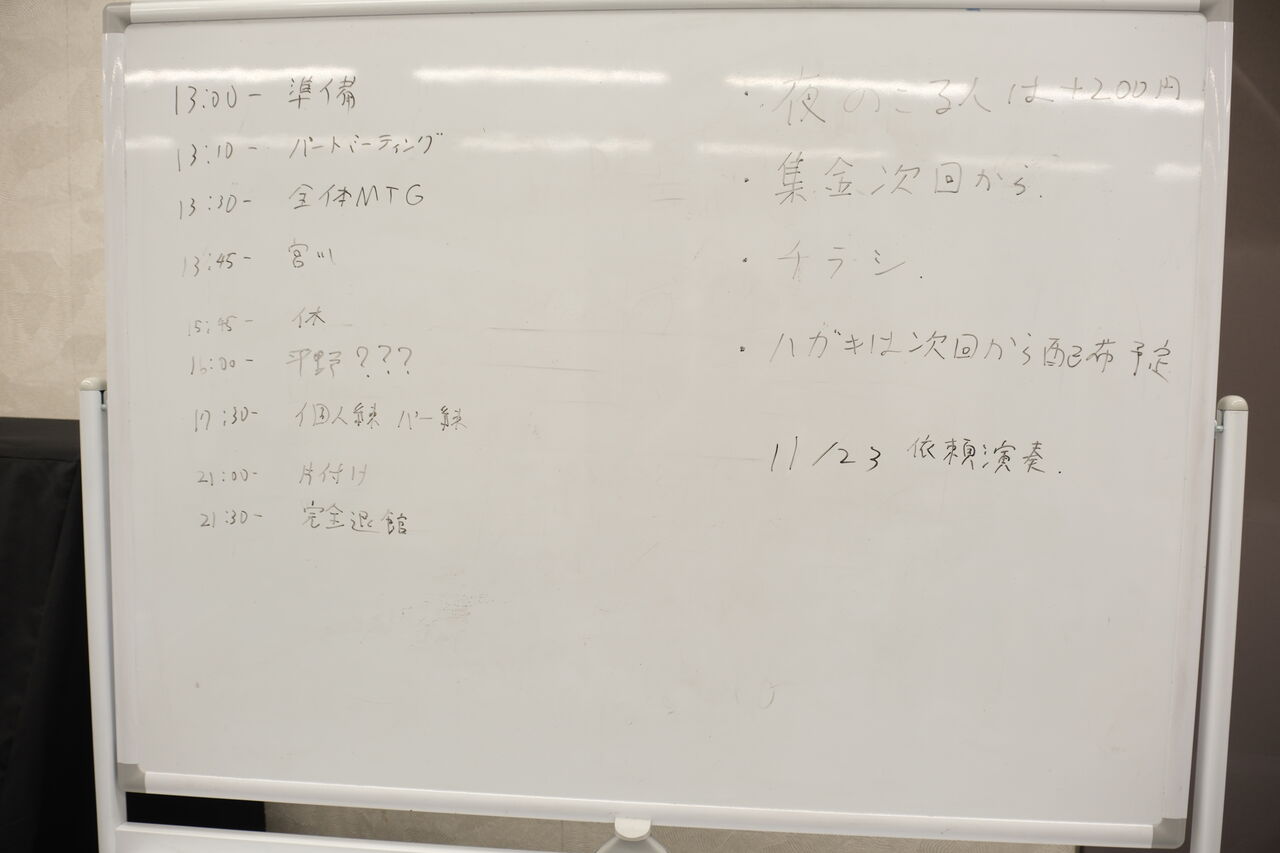 13:00- 準備
13:10- パートミーティング
13:30- 全体MTG
13:45- 宮川
15:45- 休
16:00- 平野???
17:30- 個人練 パー練
21:00- 片付け
21:30- 完全退館
・夜のこる人は+200円
・集金次回から.
・チラシ.
・ハガキは次回から配布予定
11/23 依頼演奏.